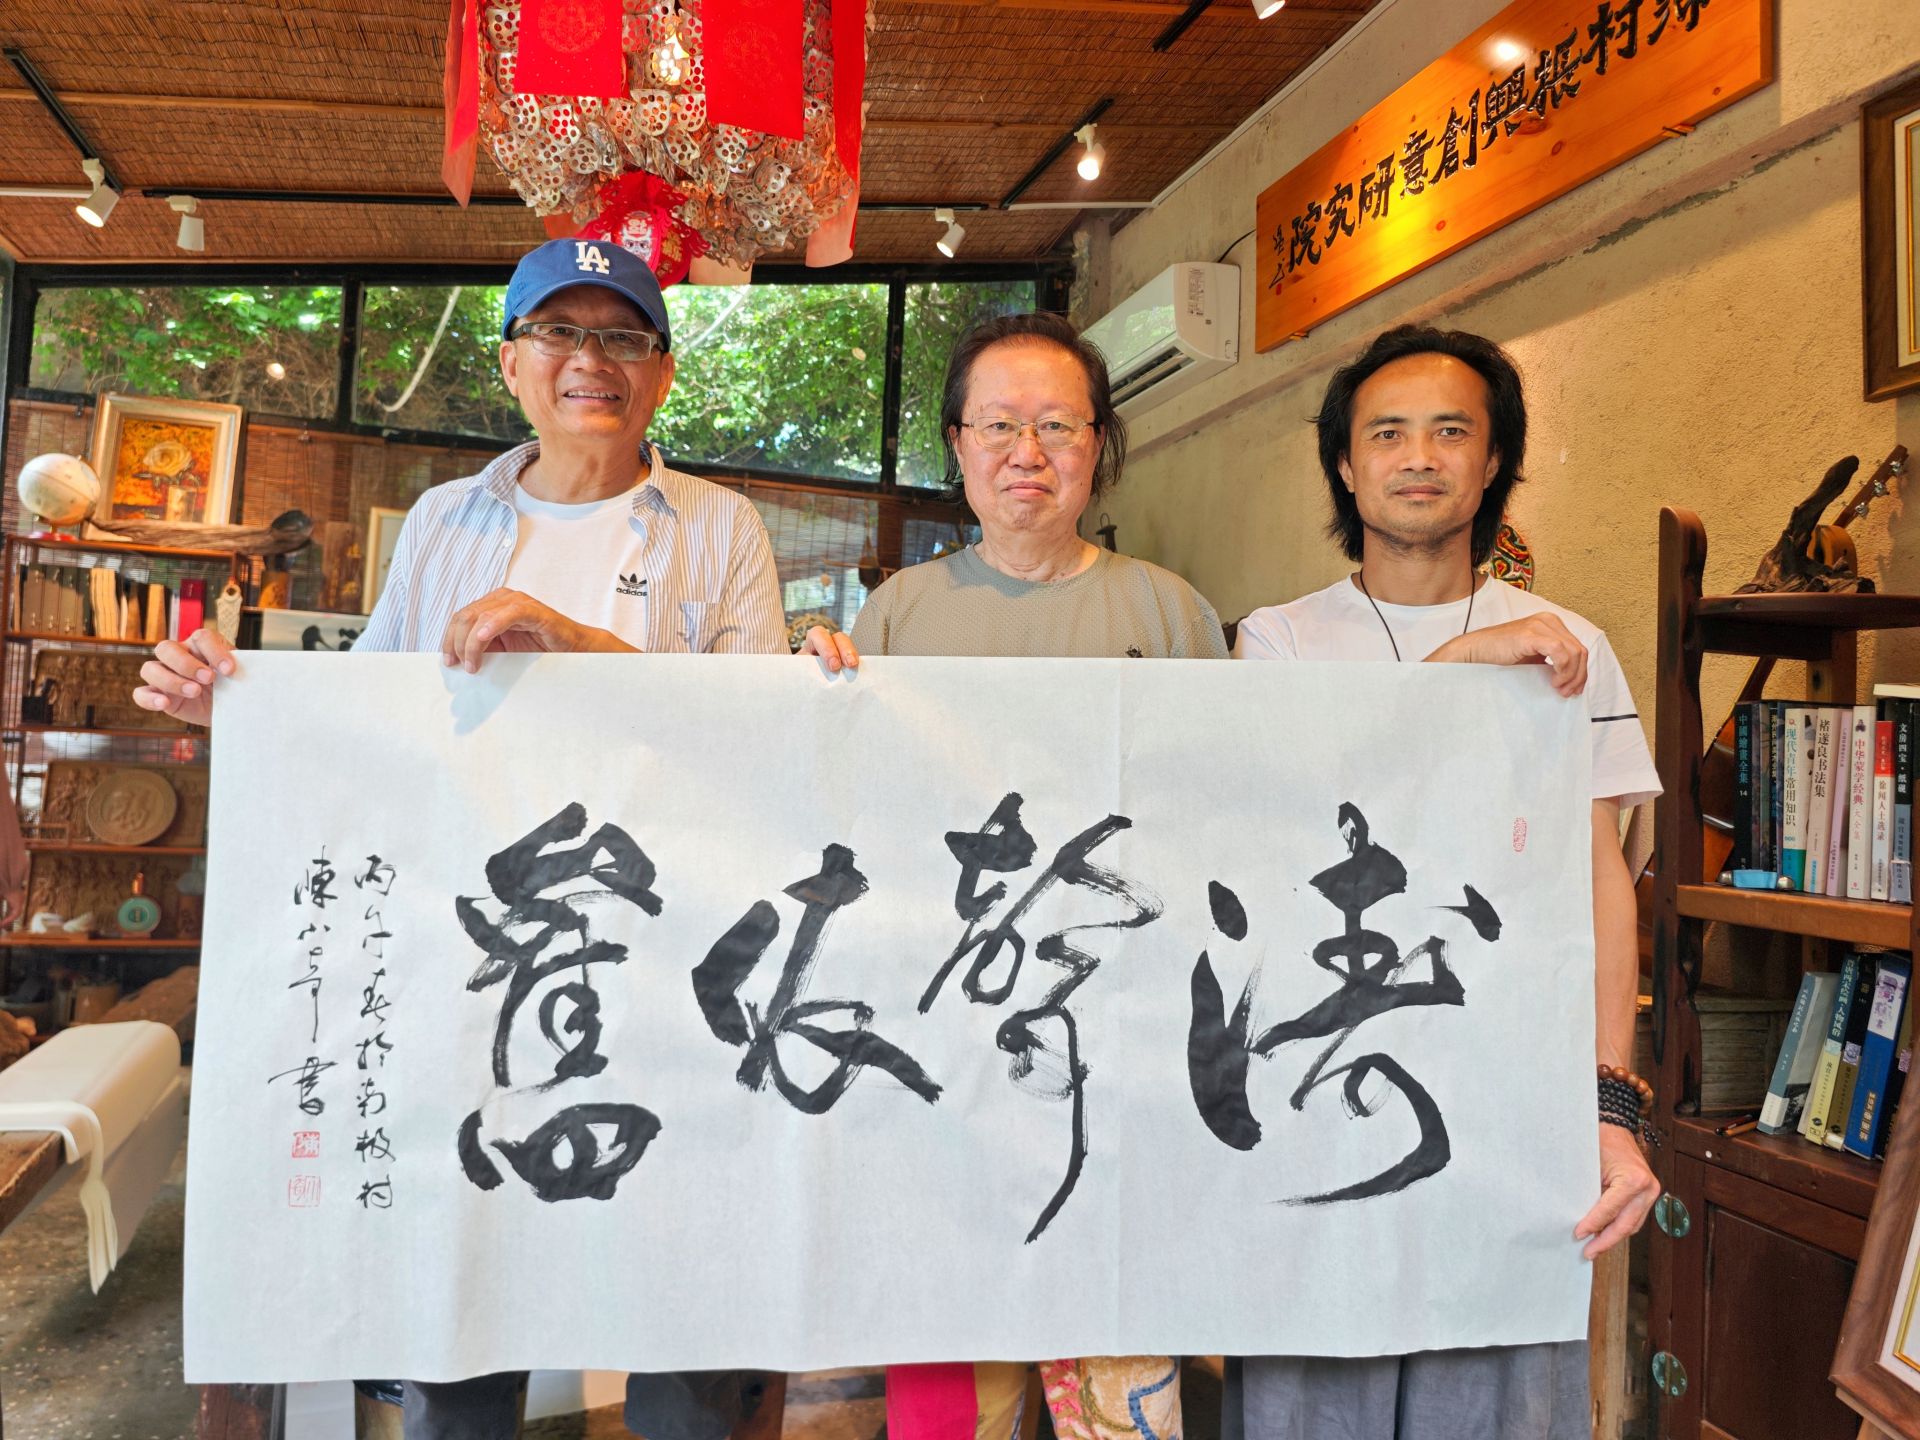 LA
院究研意創興振村
adidas
濤聲依舊
丙午春於南极村
陳小奇書
中國繪畫全集
14
现代青年常用知识
褚遂良书法集
中华蒙学经典
大全集
徐闻人士选录
文房四宝·纸砚